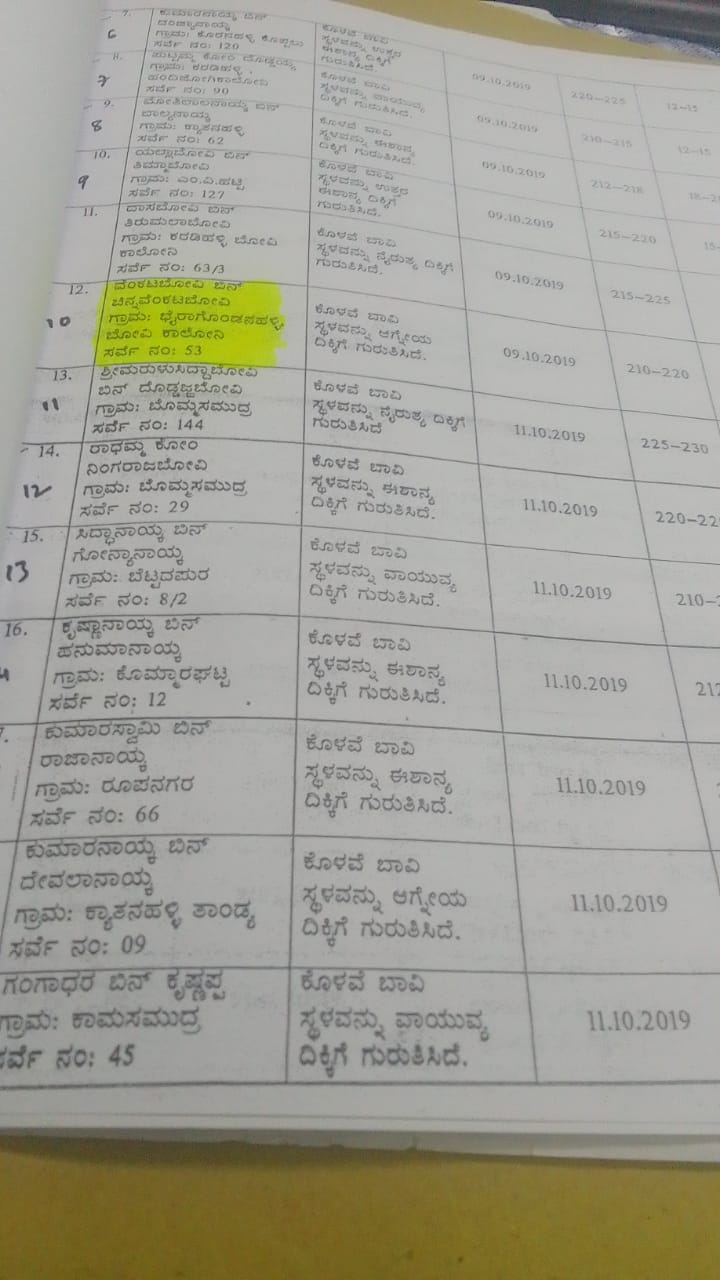 7.
ಕುಮಾರನಾಯ್ಕ ಬಿನ್
ಗ್ರಾಮ: ಕೊರನಹಳ್ಳಿ ಕೊಪ್ಪಲು
ಸರ್ವೆ ನಂ: 120
ಕೊಳವೆ ಬಾವಿ
ಸ್ಥಳವನ್ನು ಉತ್ತರ
ಈಶಾನ್ಯ ದಿಕ್ಕಿಗೆ
ಗುರುತಿಸಿದೆ.
09.10.2019
220–225
12–15
6
8.
ಪುಟ್ಟಮ್ಮ ಕೋಂ ದೊಡ್ಡಯ್ಯ
ಗ್ರಾಮ: ಕರಡಿಹಳ್ಳಿ
ಸರ್ವೆ ನಂ: 90
ಕೊಳವೆ ಬಾವಿ
ಸ್ಥಳವನ್ನು ವಾಯುವ್ಯ
ದಿಕ್ಕಿಗೆ ಗುರುತಿಸಿದೆ.
09.10.2019
210–215
12–15
7
9.
ಮೋತಿಲಾಲನಾಯ್ಕ ಬಿನ್
ಬಾಲ್ಯನಾಯ್ಕ
ಗ್ರಾಮ: ಕ್ಯಾತನಹಳ್ಳಿ
ಸರ್ವೆ ನಂ: 62
ಕೊಳವೆ ಬಾವಿ
ಸ್ಥಳವನ್ನು ಈಶಾನ್ಯ
ದಿಕ್ಕಿಗೆ ಗುರುತಿಸಿದೆ.
09.10.2019
212–218
8
10.
ಯಲ್ಲಾಬೋವಿ ಬಿನ್
ತಿಮ್ಮಾಬೋವಿ
ಗ್ರಾಮ: ಎಂ.ವಿ.ಹಟ್ಟಿ
ಸರ್ವೆ ನಂ: 127
ಕೊಳವೆ ಬಾವಿ
ಸ್ಥಳವನ್ನು ಉತ್ತರ
ಈಶಾನ್ಯ ದಿಕ್ಕಿಗೆ
ಗುರುತಿಸಿದೆ.
09.10.2019
215–220
9
11.
ದಾಸಬೋವಿ ಬಿನ್
ತಿರುಮಲಾಬೋವಿ
ಗ್ರಾಮ: ಕರಡಿಹಳ್ಳಿ ಬೋವಿ
ಕಾಲೋನಿ
ಸರ್ವೆ ನಂ: 63/3
ಕೊಳವೆ ಬಾವಿ
ಸ್ಥಳವನ್ನು ನೈರುತ್ಯ ದಿಕ್ಕಿಗೆ
ಗುರುತಿಸಿದೆ.
09.10.2019
215–225
12.
ವೆಂಕಟಬೋವಿ ಬಿನ್
ಚಿನ್ನವೆಂಕಟಬೋವಿ
ಗ್ರಾಮ: ಭೈರಾಗೊಂಡನಹಳ್ಳಿ
ಬೋವಿ ಕಾಲೋನಿ
ಸರ್ವೆ ನಂ: 53
ಕೊಳವೆ ಬಾವಿ
ಸ್ಥಳವನ್ನು ಆಗ್ನೇಯ
ದಿಕ್ಕಿಗೆ ಗುರುತಿಸಿದೆ.
09.10.2019
210–220
10
13.
ಶ್ರೀಮರುಳುಸಿದ್ದಾಬೋವಿ
ಬಿನ್ ದೊಡ್ಡಜ್ಜಬೋವಿ
ಗ್ರಾಮ: ಬೊಮ್ಮಸಮುದ್ರ
ಸರ್ವೆ ನಂ: 144
ಕೊಳವೆ ಬಾವಿ
ಸ್ಥಳವನ್ನು ನೈರುತ್ಯ ದಿಕ್ಕಿಗೆ
ಗುರುತಿಸಿದೆ
11.10.2019
225–230
11
14.
ರಾಧಮ್ಮ ಕೋಂ
ನಿಂಗರಾಜಬೋವಿ
ಗ್ರಾಮ: ಬೊಮ್ಮಸಮುದ್ರ
ಸರ್ವೆ ನಂ: 29
ಕೊಳವೆ ಬಾವಿ
ಸ್ಥಳವನ್ನು ಈಶಾನ್ಯ
ದಿಕ್ಕಿಗೆ ಗುರುತಿಸಿದೆ.
11.10.2019
12
15.
ಸಿದ್ಧಾನಾಯ್ಕ ಬಿನ್
ಗೋನ್ಯಾನಾಯ್ಕ
ಗ್ರಾಮ: ಬೆಟ್ಟದಪುರ
ಸರ್ವೆ ನಂ: 8/2
ಕೊಳವೆ ಬಾವಿ
ಸ್ಥಳವನ್ನು ವಾಯುವ್ಯ
ದಿಕ್ಕಿಗೆ ಗುರುತಿಸಿದೆ.
11.10.2019
13
16.
ಕೃಷ್ಣಾನಾಯ್ಕ ಬಿನ್
ಹನುಮಾನಾಯ್ಕ
ಗ್ರಾಮ: ಕೊಮ್ಮಾರಘಟ್ಟ
ಸರ್ವೆ ನಂ: 12
ಕೊಳವೆ ಬಾವಿ
ಸ್ಥಳವನ್ನು ಈಶಾನ್ಯ
ದಿಕ್ಕಿಗೆ ಗುರುತಿಸಿದೆ.
11.10.2019
ಕುಮಾರಸ್ವಾಮಿ ಬಿನ್
ರಾಜಾನಾಯ್ಕ
ಗ್ರಾಮ: ರೂಪನಗರ
ಸರ್ವೆ ನಂ: 66
ಕೊಳವೆ ಬಾವಿ
ಸ್ಥಳವನ್ನು ಈಶಾನ್ಯ
ದಿಕ್ಕಿಗೆ ಗುರುತಿಸಿದೆ.
11.10.2019
ಕುಮಾರನಾಯ್ಕ ಬಿನ್
ದೇವಲಾನಾಯ್ಕ
ಗ್ರಾಮ: ಕ್ಯಾತನಹಳ್ಳಿ ತಾಂಡ್ಯ
ಸರ್ವೆ ನಂ: 09
ಕೊಳವೆ ಬಾವಿ
ಸ್ಥಳವನ್ನು ಆಗ್ನೇಯ
ದಿಕ್ಕಿಗೆ ಗುರುತಿಸಿದೆ.
11.10.2019
ಗಂಗಾಧರ ಬಿನ್ ಕೃಷ್ಣಪ್ಪ
ಗ್ರಾಮ: ಕಾಮಸಮುದ್ರ
ಸರ್ವೆ ನಂ: 45
ಕೊಳವೆ ಬಾವಿ
ಸ್ಥಳವನ್ನು ವಾಯುವ್ಯ
ದಿಕ್ಕಿಗೆ ಗುರುತಿಸಿದೆ.
11.10.2019